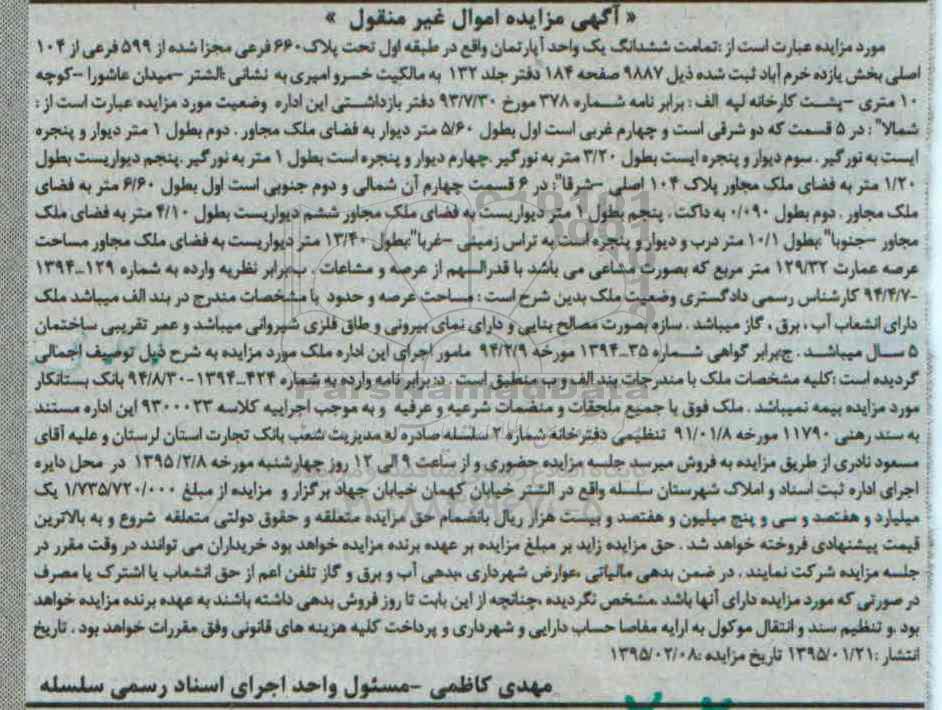 « آگهی مزایده اموال غیر منقول »
مورد مزایده عبارت است از :تمامت ششدانگ یک واحد آپارتمان واقع در طبقه اول تحت پلاک۶۶۰ فرعی مجزا شده از ۵۹۹ فرعی از ۱۰۴
اصلی بخش یازده خرم آباد ثبت شده ذیل ۹۸۸۷ صفحه ۱۸۴ دفتر جلد ۱۳۲ به مالکیت خسرو امیری به نشانی :الشتر –میدان عاشورا –کوچه
۱۰ متری –پشت کارخانه لپه الف : برابر نامه شماره ۳۷۸ مورخ ۹۳/۷/۳۰ دفتر بازداشتی این اداره وضعیت مورد مزایده عبارت است از :
شمالا" : در ۵ قسمت که دو شرقی است و چهارم غربی است اول بطول ۵/۶۰ متر دیوار به فضای ملک مجاور . دوم بطول ۱ متر دیوار و پنجره
ایست به نورگیر . سوم دیوار و پنجره ایست بطول ۳/۲۰ متر به نورگیر .چهارم دیوار و پنجره است بطول ۱ متر به نورگیر .پنجم دیواریست بطول
۱/۲۰ متر به فضای ملک مجاور پلاک ۱۰۴ اصلی –شرقا": در ۶ قسمت چهارم آن شمالی و دوم جنوبی است اول بطول ۶/۶۰ متر به فضای
ملک مجاور . دوم بطول ۰/۰۹۰ به داکت . پنجم بطول ۱ متر دیواریست به فضای ملک مجاور ششم دیواریست بطول ۴/۱۰ متر به فضای ملک
مجاور –جنوبا" :بطول ۱۰/۱ متر درب و دیوار و پنجره است به تراس زمینی –غربا":بطول ۱۳/۴۰ متر دیواریست به فضای ملک مجاور مساحت
عرصه عمارت ۱۲۹/۳۲ متر مربع که بصورت مشاعی می باشد با قدرالسهم از عرصه و مشاعات . ب:برابر نظریه وارده به شماره ۱۲۹–۱۳۹۴
-۹۴/۴/۷ کارشناس رسمی دادگستری وضعیت ملک بدین شرح است : مساحت عرصه و حدود با مشخصات مندرج در بند الف میباشد ملک
دارای انشعاب آب ، برق ، گاز میباشد . سازه بصورت مصالح بنایی و دارای نمای بیرونی و طاق فلزی شیروانی میباشد و عمر تقریبی ساختمان
۵ سال میباشد . ج:برابر گواهی شماره ۳۵–۱۳۹۴ مورخه ۹۴/۲/۹ مامور اجرای این اداره ملک مورد مزایده به شرح ذیل توصیف اجمالی
گردیده است :کلیه مشخصات ملک با مندرجات بند الف و ب منطبق است . د: برابر نامه وارده به شماره ۴۲۴–۱۳۹۴-۹۴/۸/۳۰ بانک بستانکار
مورد مزایده بیمه نمیباشد . ملک فوق با جمیع ملحقات و منضمات شرعیه و عرفیه و به موجب اجراییه کلاسه ۹۳۰۰۰۲۳ این اداره مستند
به سند رهنی ۱۱۷۹۰ مورخه ۹۱/۰۱/۸ تنظیمی دفترخانه شماره ۲ سلسله صادره له مدیریت شعب بانک تجارت استان لرستان و علیه آقای
مسعود نادری از طریق مزایده به فروش میرسد جلسه مزایده حضوری و از ساعت ۹ الی ۱۲ روز چهارشنبه مورخه ۱۳۹۵/۲/۸ در محل دایره
اجرای اداره ثبت اسناد و املاک شهرستان سلسله واقع در الشتر خیابان کهمان خیابان جهاد برگزار و مزایده از مبلغ ۱/۷۳۵/۷۲۰/۰۰۰ یک
میلیارد و هفتصد و سی و پنج میلیون و هفتصد و بیست هزار ریال بانضمام حق مزایده متعلقه و حقوق دولتی متعلقه شروع و به بالاترین
قیمت پیشنهادی فروخته خواهد شد . حق مزایده زاید بر مبلغ مزایده بر عهده برنده مزایده خواهد بود خریداران می توانند در وقت مقرر در
جلسه مزایده شرکت نمایند . در ضمن بدهی مالیاتی ،عوارض شهرداری ،بدهی آب و برق و گاز تلفن اعم از حق انشعاب یا اشترک یا مصرف
در صورتی که مورد مزایده دارای آنها باشد .مشخص نگردیده ،چنانجه از این بابت تا روز فروش بدهی داشته باشند به عهده برنده مزایده خواهد
بود .و تنظیم سند و انتقال موکول به ارایه مفاصا حساب دارایی و شهرداری و پرداخت کلیه هزینه های قانونی وفق مقررات خواهد بود . تاریخ
انتشار :۱۳۹۵/۰۱/۲۱ تاریخ مزایده :۱۳۹۵/۰۲/۰۸
مهدی کاظمی –مسئول واحد اجرای اسناد رسمی سلسله